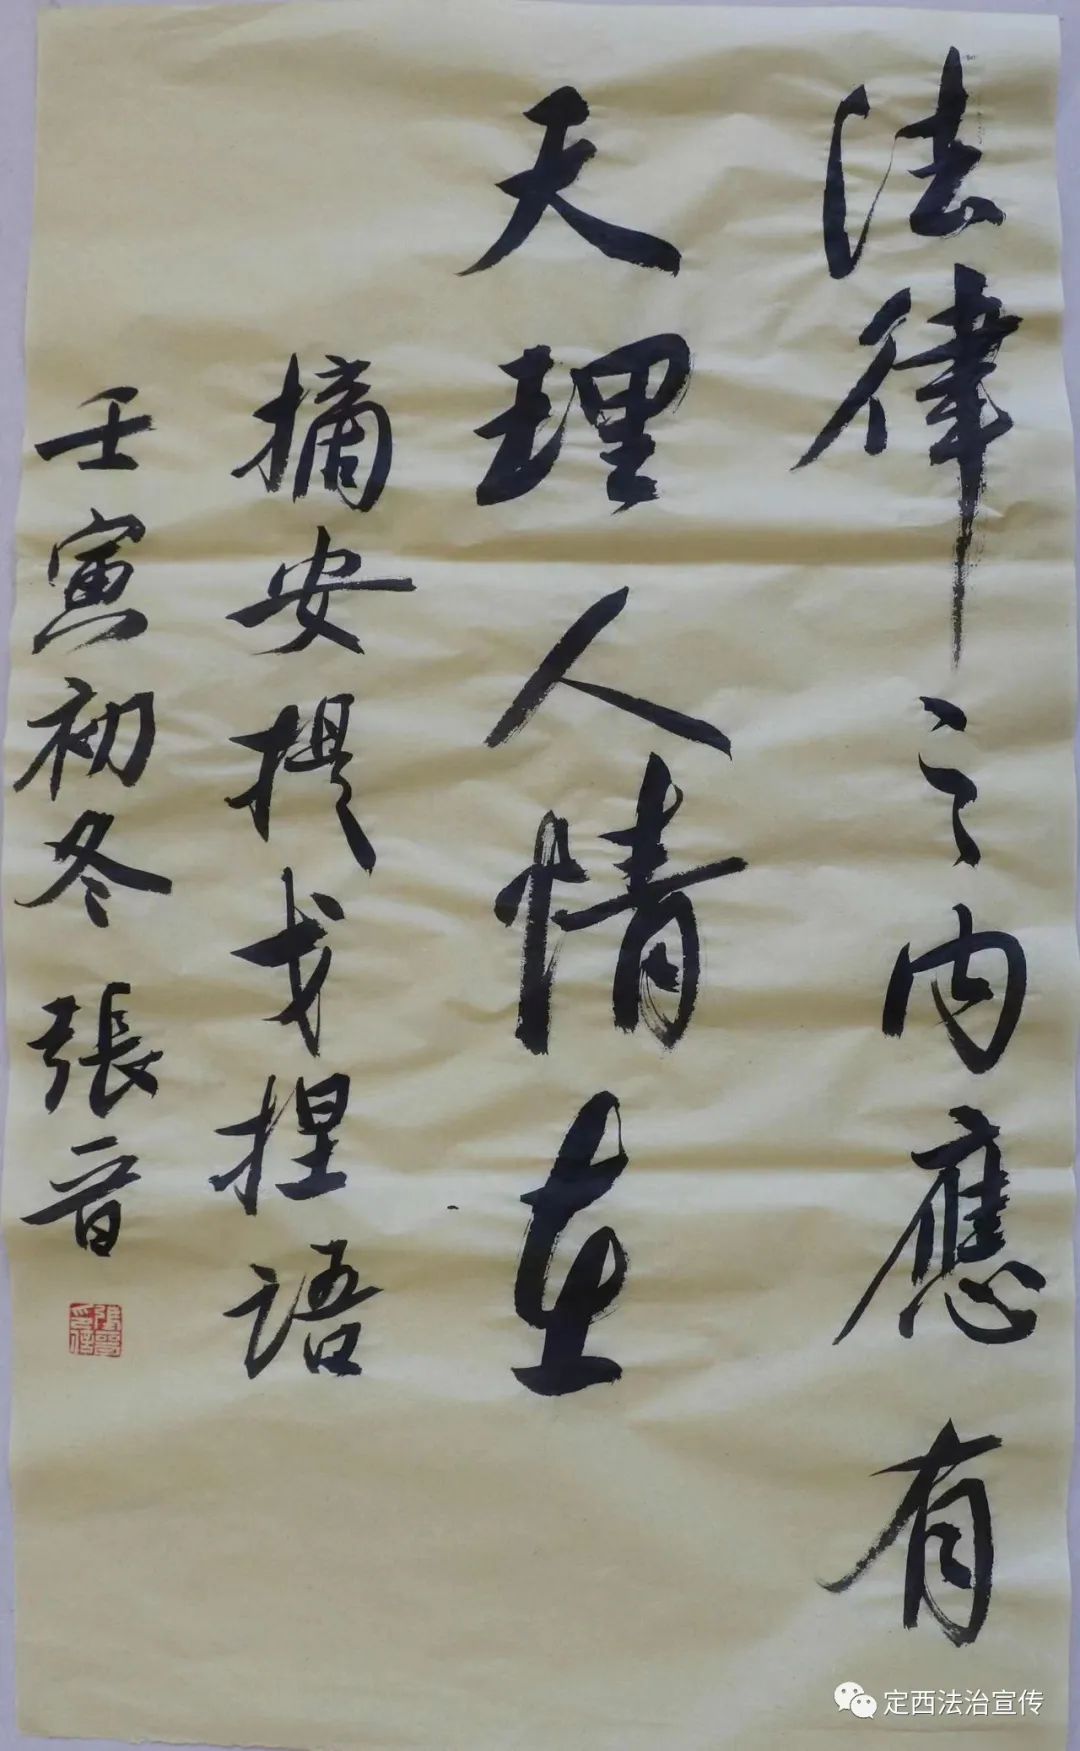 法律之内應有
天理人情在
摘安提戈捏語
壬寅初冬 張音
定西法治宣传